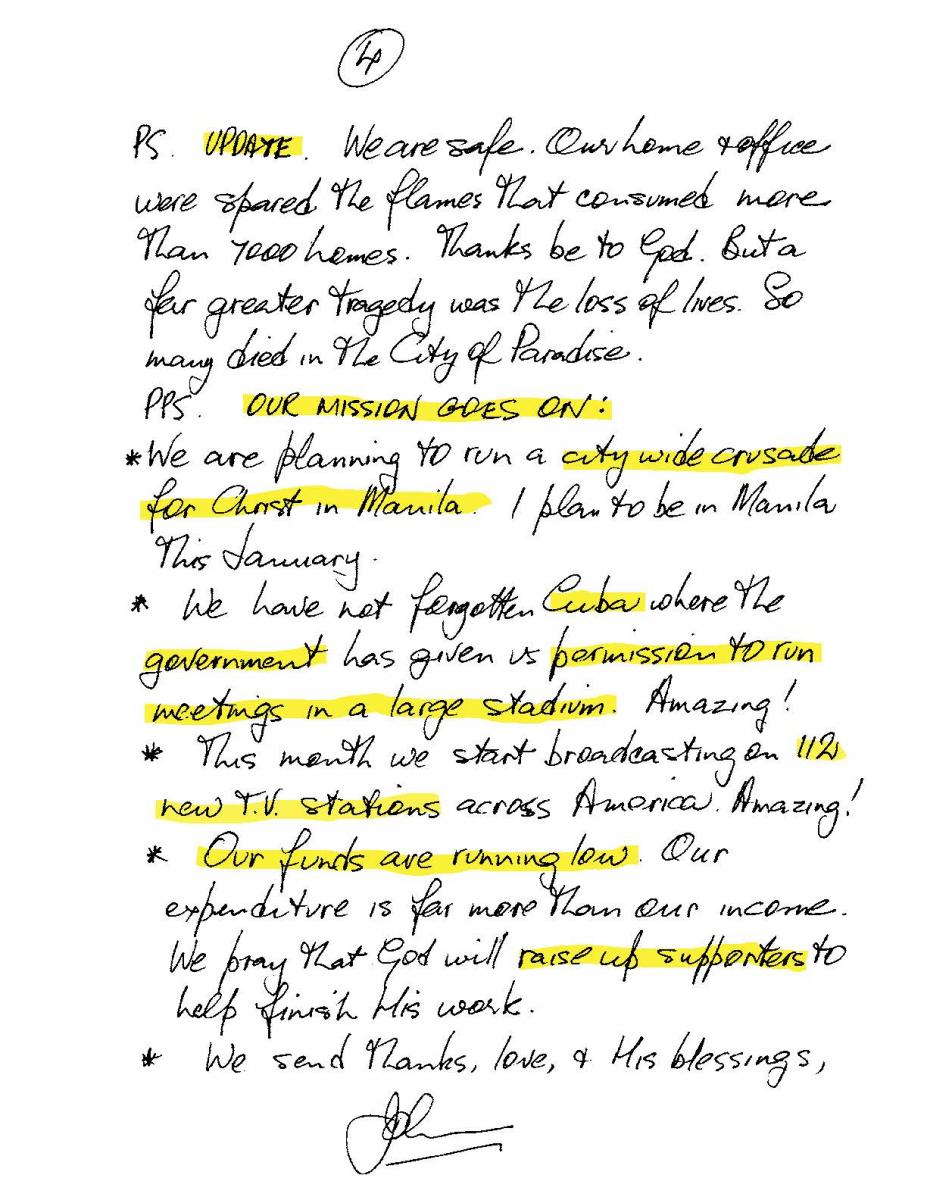 4
PS. UPDATE. We are safe. Our home & office
were spared the flames that consumed more
than 7000 homes. Thanks be to God. But a
far greater tragedy was the loss of lives. So
many died in the City of Paradise.
PPS. OUR MISSION GOES ON:
*We are planning to run a city wide crusade
for Christ in Manila. I plan to be in Manila
this January.
* We have not forgotten Cuba where the
government has given us permission to run
meetings in a large stadium. Amazing!
* This month we start broadcasting on 112
new T.V. stations across America. Amazing!
* Our funds are running low. Our
expenditure is far more than our income.
We pray that God will raise up supporters to
help finish His work.
* We send thanks, love, & His blessings,
John